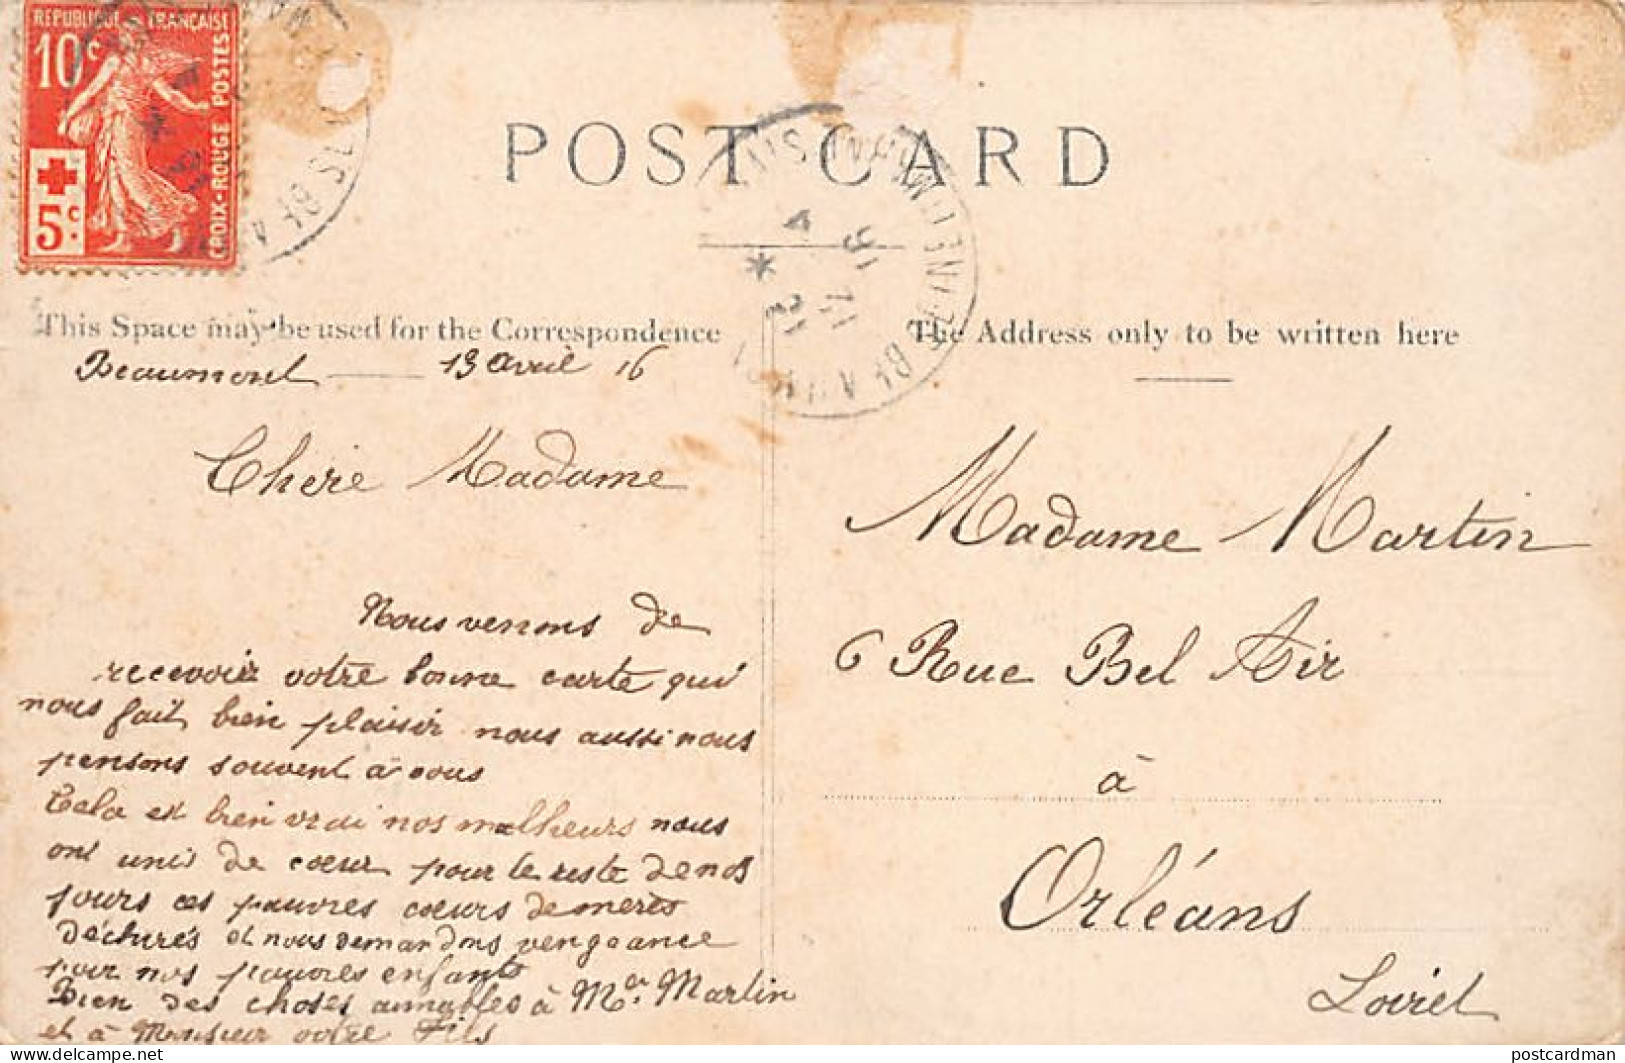 REPUBLIQUE FRANÇAISE
10c
POSTES
CROIX-ROUGE
5c
POST CARD
This Space may be used for the Correspondence
The Address only to be written here
Beaumont — 13 avril 16
Chere Madame
Nous venons de
recevoir votre bonne carte qui
nous fait bien plaisir nous aussi nous
pensons souvent à vous
Cela est bien vrai nos malheurs nous
ont unis de cœur pour le reste de nos
jours ces pauvres cœurs de meres
déchirés et nous demandons vengeance
pour nos pauvres enfants
Bien des choses aimables à Mr Martin
et à Monsieur votre Fils
Madame Martin
6 Rue Bel Air
à
Orléans
Loiret
postcardman